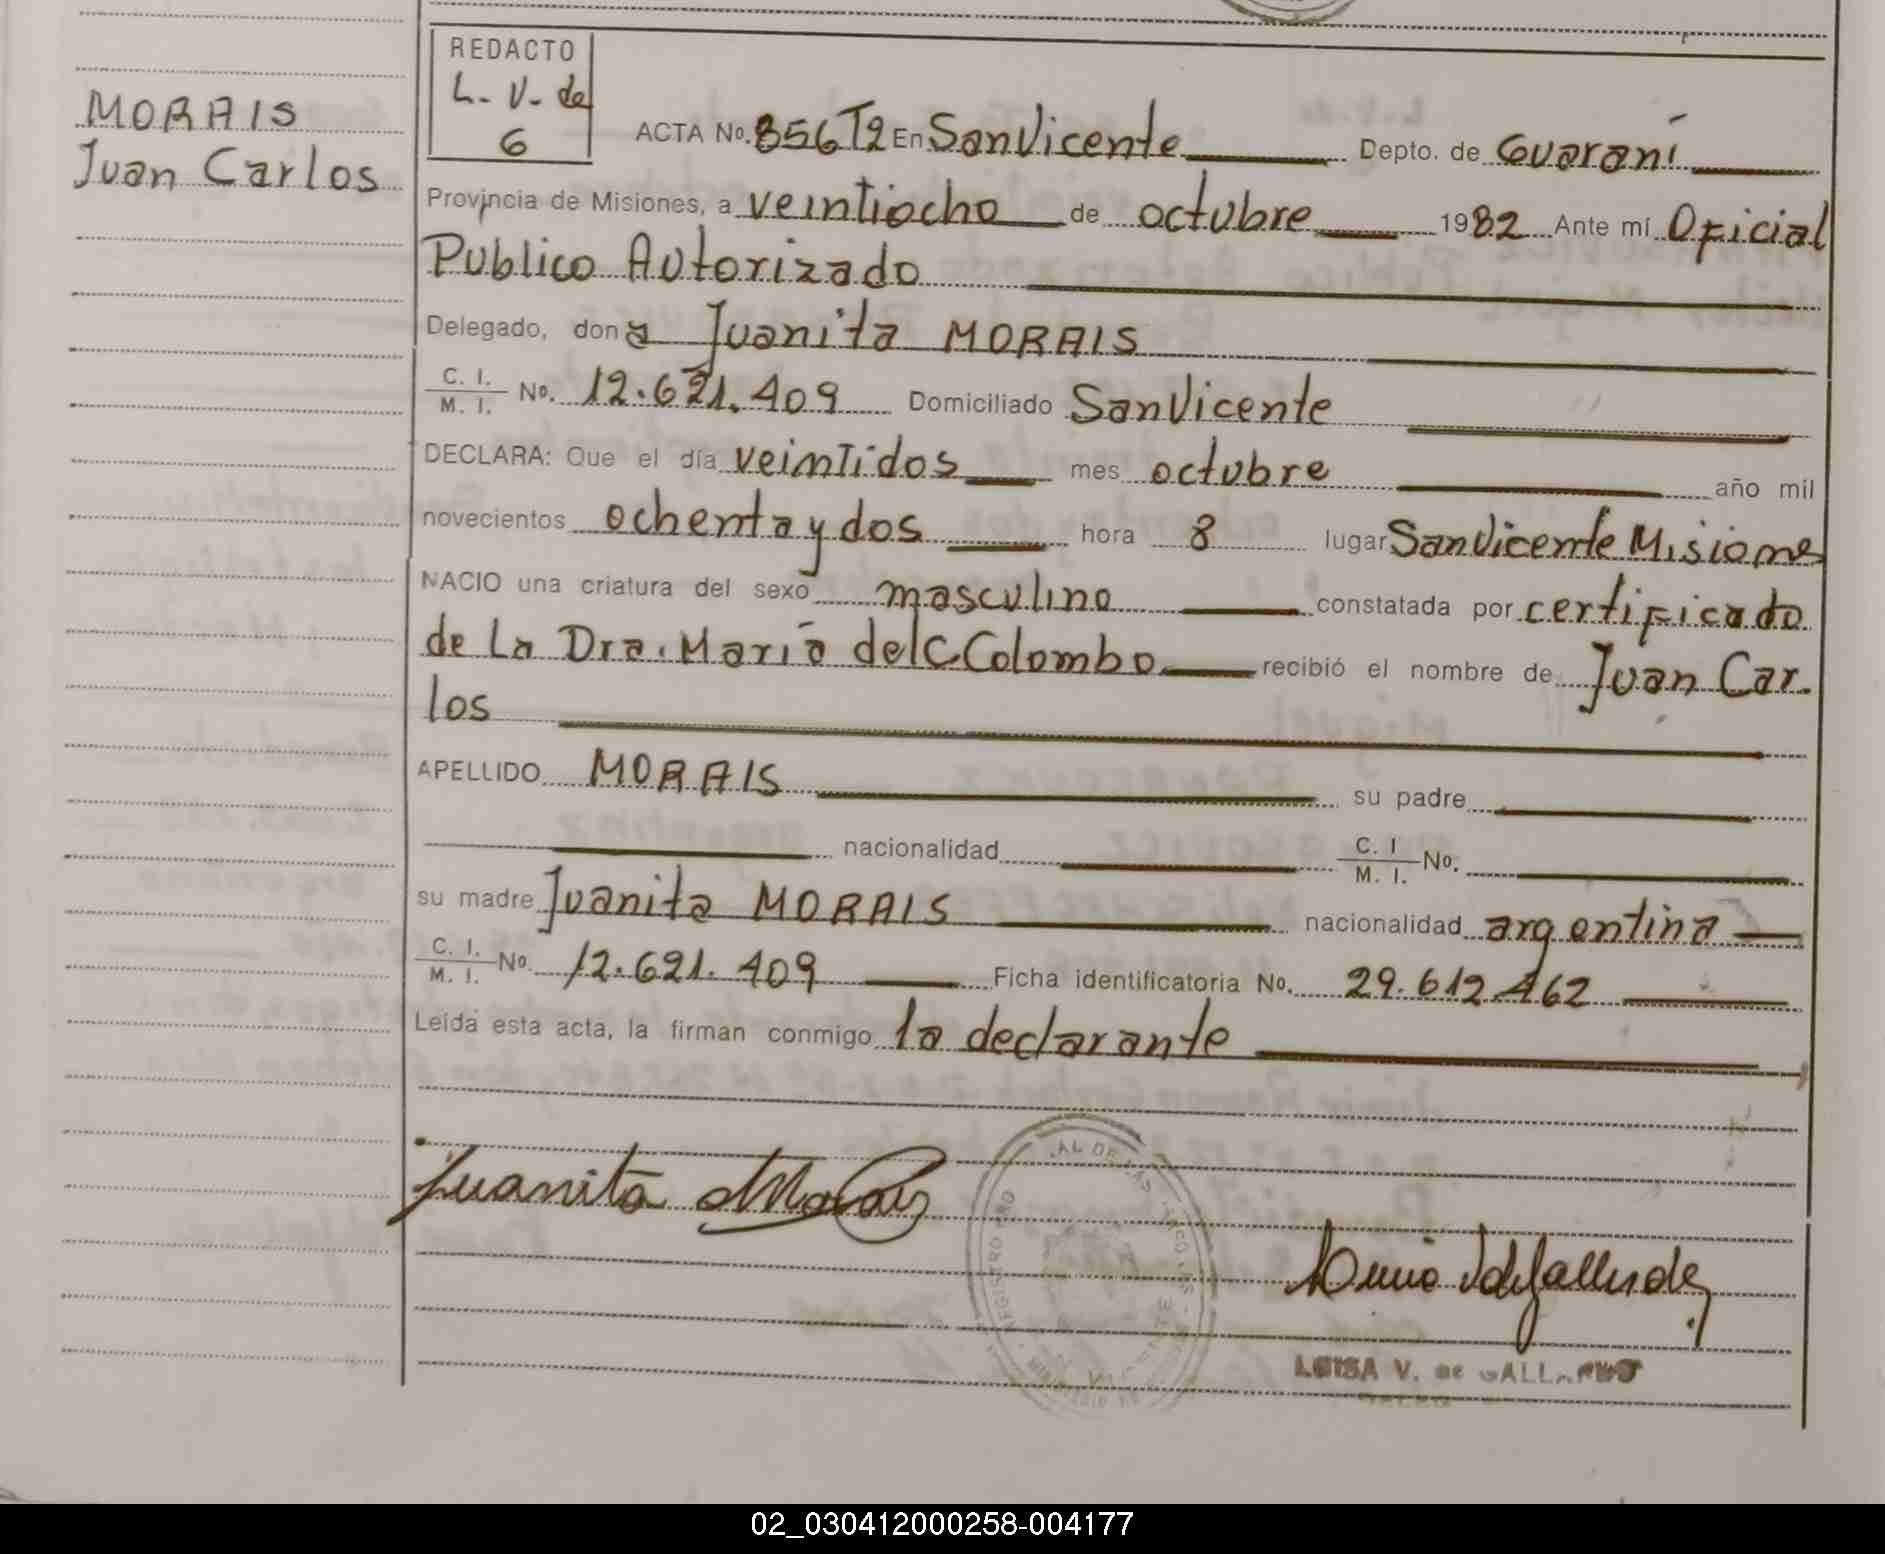 MORAIS
Juan Carlos
REDACTO
L. V. de
G
ACTA No. 856T2 En San Vicente Depto. de Guaraní
Provincia de Misiones, a veintiocho de octubre 1982 Ante mí Oficial
Publico Autorizado
Delegado, doña Juanita MORAIS
C. I.
M. I. No. 12.621.409 Domiciliado San Vicente
DECLARA: Que el día veintidos mes octubre año mil
novecientos ochenta y dos hora 8 lugar San Vicente Misiones
NACIO una criatura del sexo masculino constatada por certificado
de La Dra. María del C Colombo recibió el nombre de Juan Car.
los
APELLIDO MORAIS su padre
nacionalidad C. I M. I. No:
su madre Juanita MORAIS nacionalidad argentina
C. I.
M. I. No. 12.621.409 Ficha identificatoria No. 29.612.462
Leída esta acta, la firman conmigo la declarante
Juanita Morais
LUISA V. DE GALLARDO
02_030412000258-004177